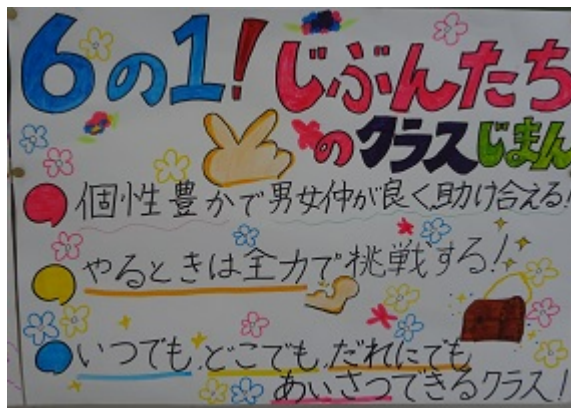 6の1！じぶんたち
のクラスじまん
個性豊かで男女仲が良く、助け合える！
やるときは全力で挑戦する！！
いつでも、どこでも、だれにでも
あいさつできるクラス！